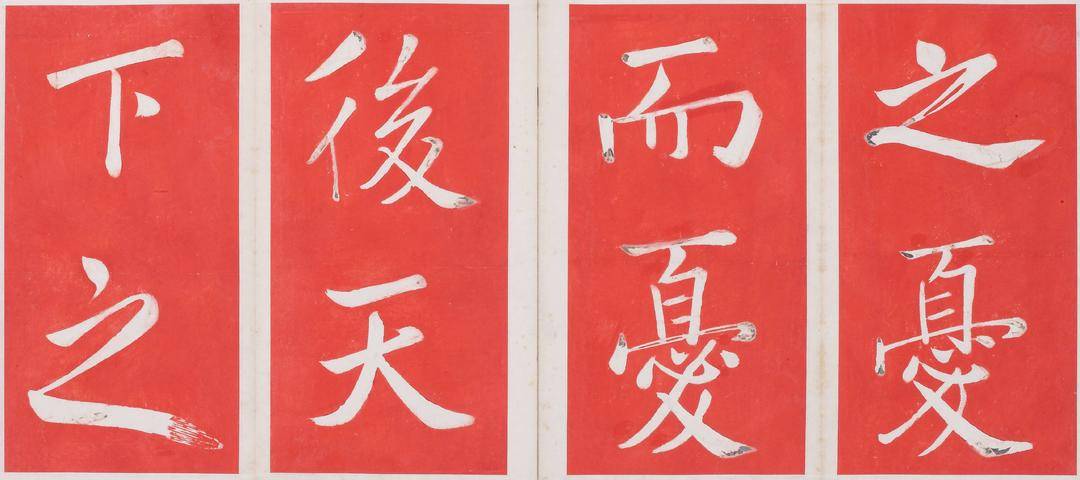 之憂
而憂
後天
下之